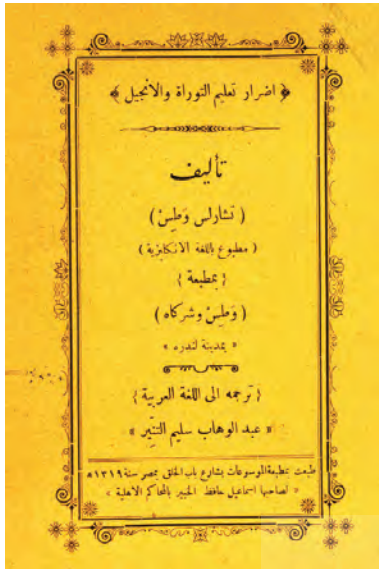 ﴿ اضرار تعليم التوراة والانجيل ﴾
تأليف
( تشارلس وَطِسْ )
( مطبوع باللغة الانكليزية )
{ بمطبعة }
( وَطِسْ وشركاه )
« بمدينة لندره »
{ ترجمه الى اللغة العربية }
« عبد الوهاب سليم التنِّير »
طبعت بمطبعة الموسوعات بشارع باب الخلق بمصر سنة ١٣١٩ ه
« لصاحبها اسماعيل حافظ الخبير بالمحاكم الاهلية »